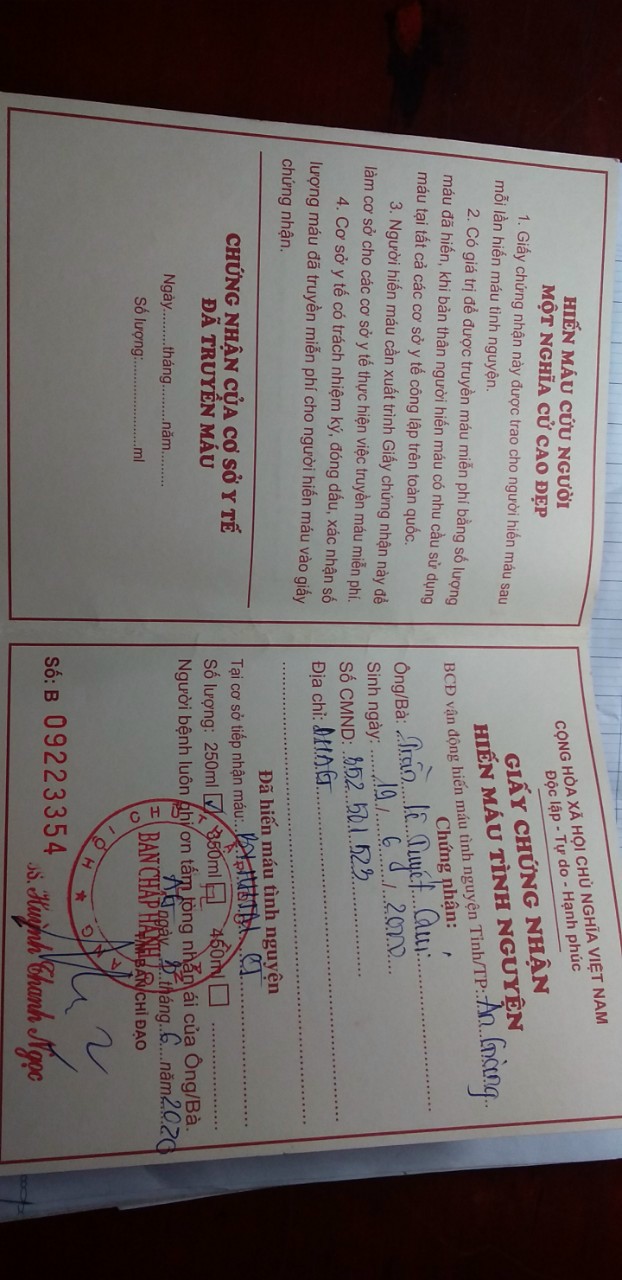 HIẾN MÁU CỨU NGƯỜI
MỘT NGHĨA CỬ CAO ĐẸP
1. Giấy chứng nhận này được trao cho người hiến máu sau
mỗi lần hiến máu tình nguyện.
2. Có giá trị để được truyền máu miễn phí bằng số lượng
máu đã hiến, khi bản thân người hiến máu có nhu cầu sử dụng
máu tại tất cả các cơ sở y tế công lập trên toàn quốc.
3. Người hiến máu cần xuất trình Giấy chứng nhận này để
làm cơ sở cho các cơ sở y tế thực hiện việc truyền máu miễn phí.
4. Cơ sở y tế có trách nhiệm ký, đóng dấu, xác nhận số
lượng máu đã truyền miễn phí cho người hiến máu vào giấy
chứng nhận.
CHỨNG NHẬN CỦA CƠ SỞ Y TẾ
ĐÃ TRUYỀN MÁU
Ngày.........tháng.........năm.........
Số lượng:.....................ml
CỘNG HÒA XÃ HỘI CHỦ NGHĨA VIỆT NAM
Độc lập - Tự do - Hạnh phúc
GIẤY CHỨNG NHẬN
HIẾN MÁU TÌNH NGUYỆN
BCĐ vận động hiến máu tình nguyện Tỉnh/TP: An Giang
Chứng nhận:
Ông/Bà: Trần Lê Tuyết
Sinh ngày: 19 / 6 / 2000
Số CMND: 352 501 523
Địa chỉ:
Đã hiến máu tình nguyện
Tại cơ sở tiếp nhận máu:
Số lượng: 250ml 350ml 450ml
Người bệnh luôn ghi ơn tấm lòng nhân ái của Ông/Bà.
AG ngày tháng 6 năm 2020
BAN CHỈ ĐẠO
BAN CHẤP HÀNH
Số: B 09223354
Huỳnh Thanh Ngọc